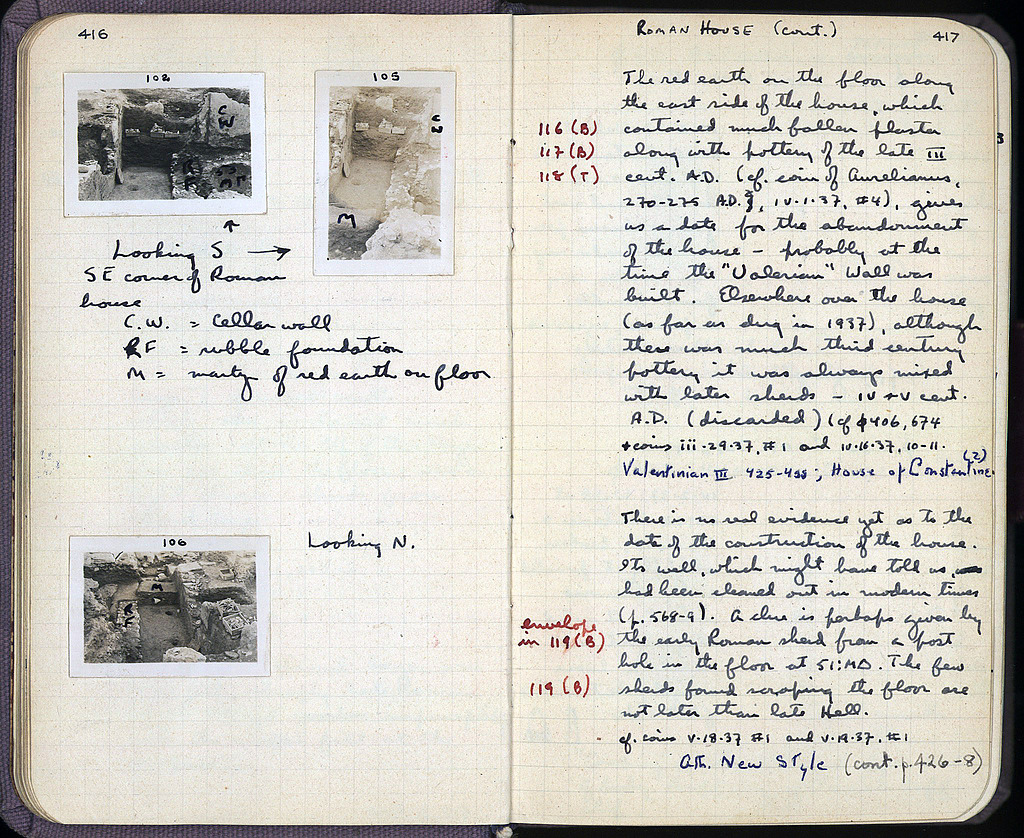 416
102
105
C
W
C
W
R
F
M
Looking S →
SE corner of Roman
house
C.W. = cellar wall
RF = rubble foundation
M = of red earth on floor
106
M
Looking N.
ROMAN HOUSE (cont.)
417
The red earth on the floor along
the east side of the house, which
116 (B)
contained much fallen plaster
117 (B)
along with pottery of the late III
118 (T)
cent. A.D. (cf. coin of Aurelianus,
270-275 A.D., IV.1.37, #4), gives
us a date for the abandonment
of the house – probably at the
time the "Valerian" Wall was
built. Elsewhere over the house
(as far as dug in 1937), although
there was much third century
pottery it was always mixed
with later sherds – IV + V cent.
A.D. (discarded) (cf p 406, 674
+ coins iii.29.37, #1 and IV.16.37, 10-11.
Valentinian III 425-455; House of Constantine (2)
There is no real evidence yet as to the
date of the construction of the house.
Its well, which might have told us,
had been cleaned out in modern times
(p. 568-9). A clue is perhaps given by
envelope
in 119 (B)
the early Roman sherd from a post
hole in the floor at 51:MΔ. The few
119 (B)
sherds found scraping the floor are
not later than late Hell.
cf. coins V.18.37 #1 and V.19.37, #1
Ath. New Style (cont. p. 426-8)